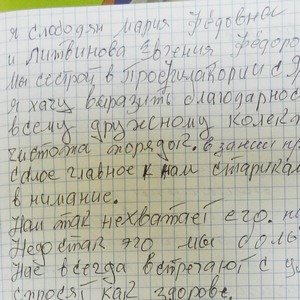 я слободян мария Фёдовна
и Литвинова Евгения Фёдоро
мы сестрой в Профилаторий с
я хачу выразить благодарнос
всему дружесному колек
чистота порядок. в зании пр
самое главное к нам старикам
в нимание.
Нам так нехватает его. по
Недостак эго мы боль
Нас всегда встречают с у
спросят как здорове